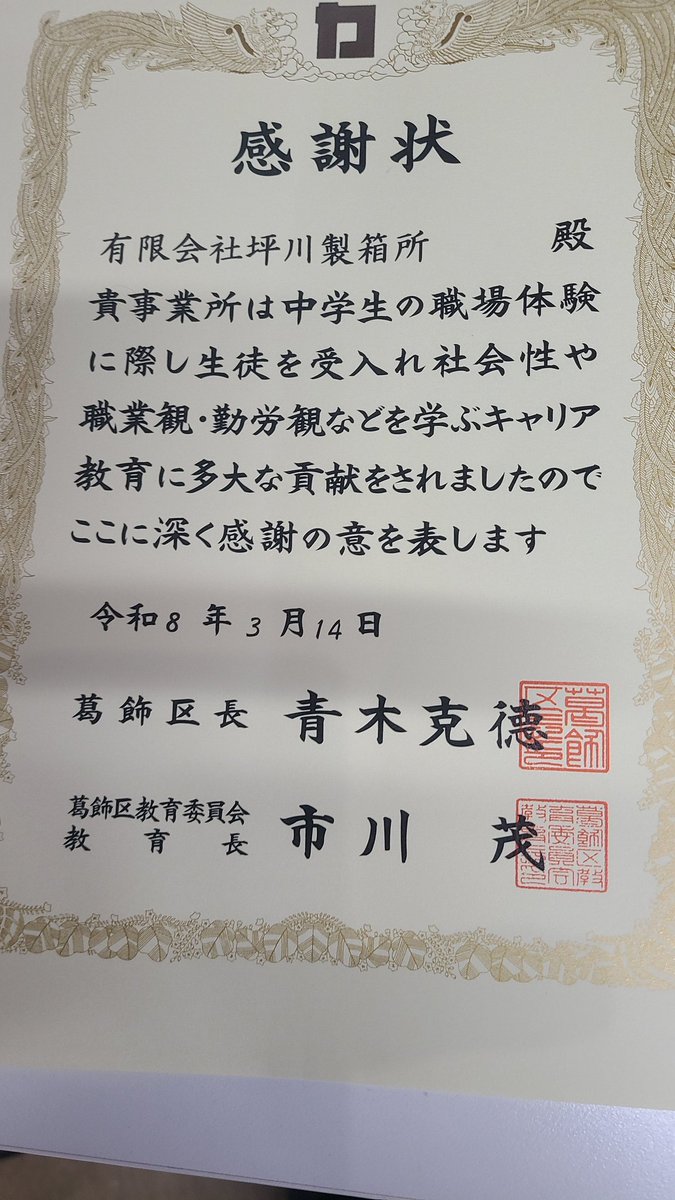 感謝状
有限会社坪川製箱所 殿
貴事業所は中学生の職場体験
に際し生徒を受入れ社会性や
職業観・勤労観などを学ぶキャリア
教育に多大な貢献をされましたので
ここに深く感謝の意を表します
令和8年3月14日
葛飾区長 青木克德
葛飾区教育委員会
教育長 市川 茂